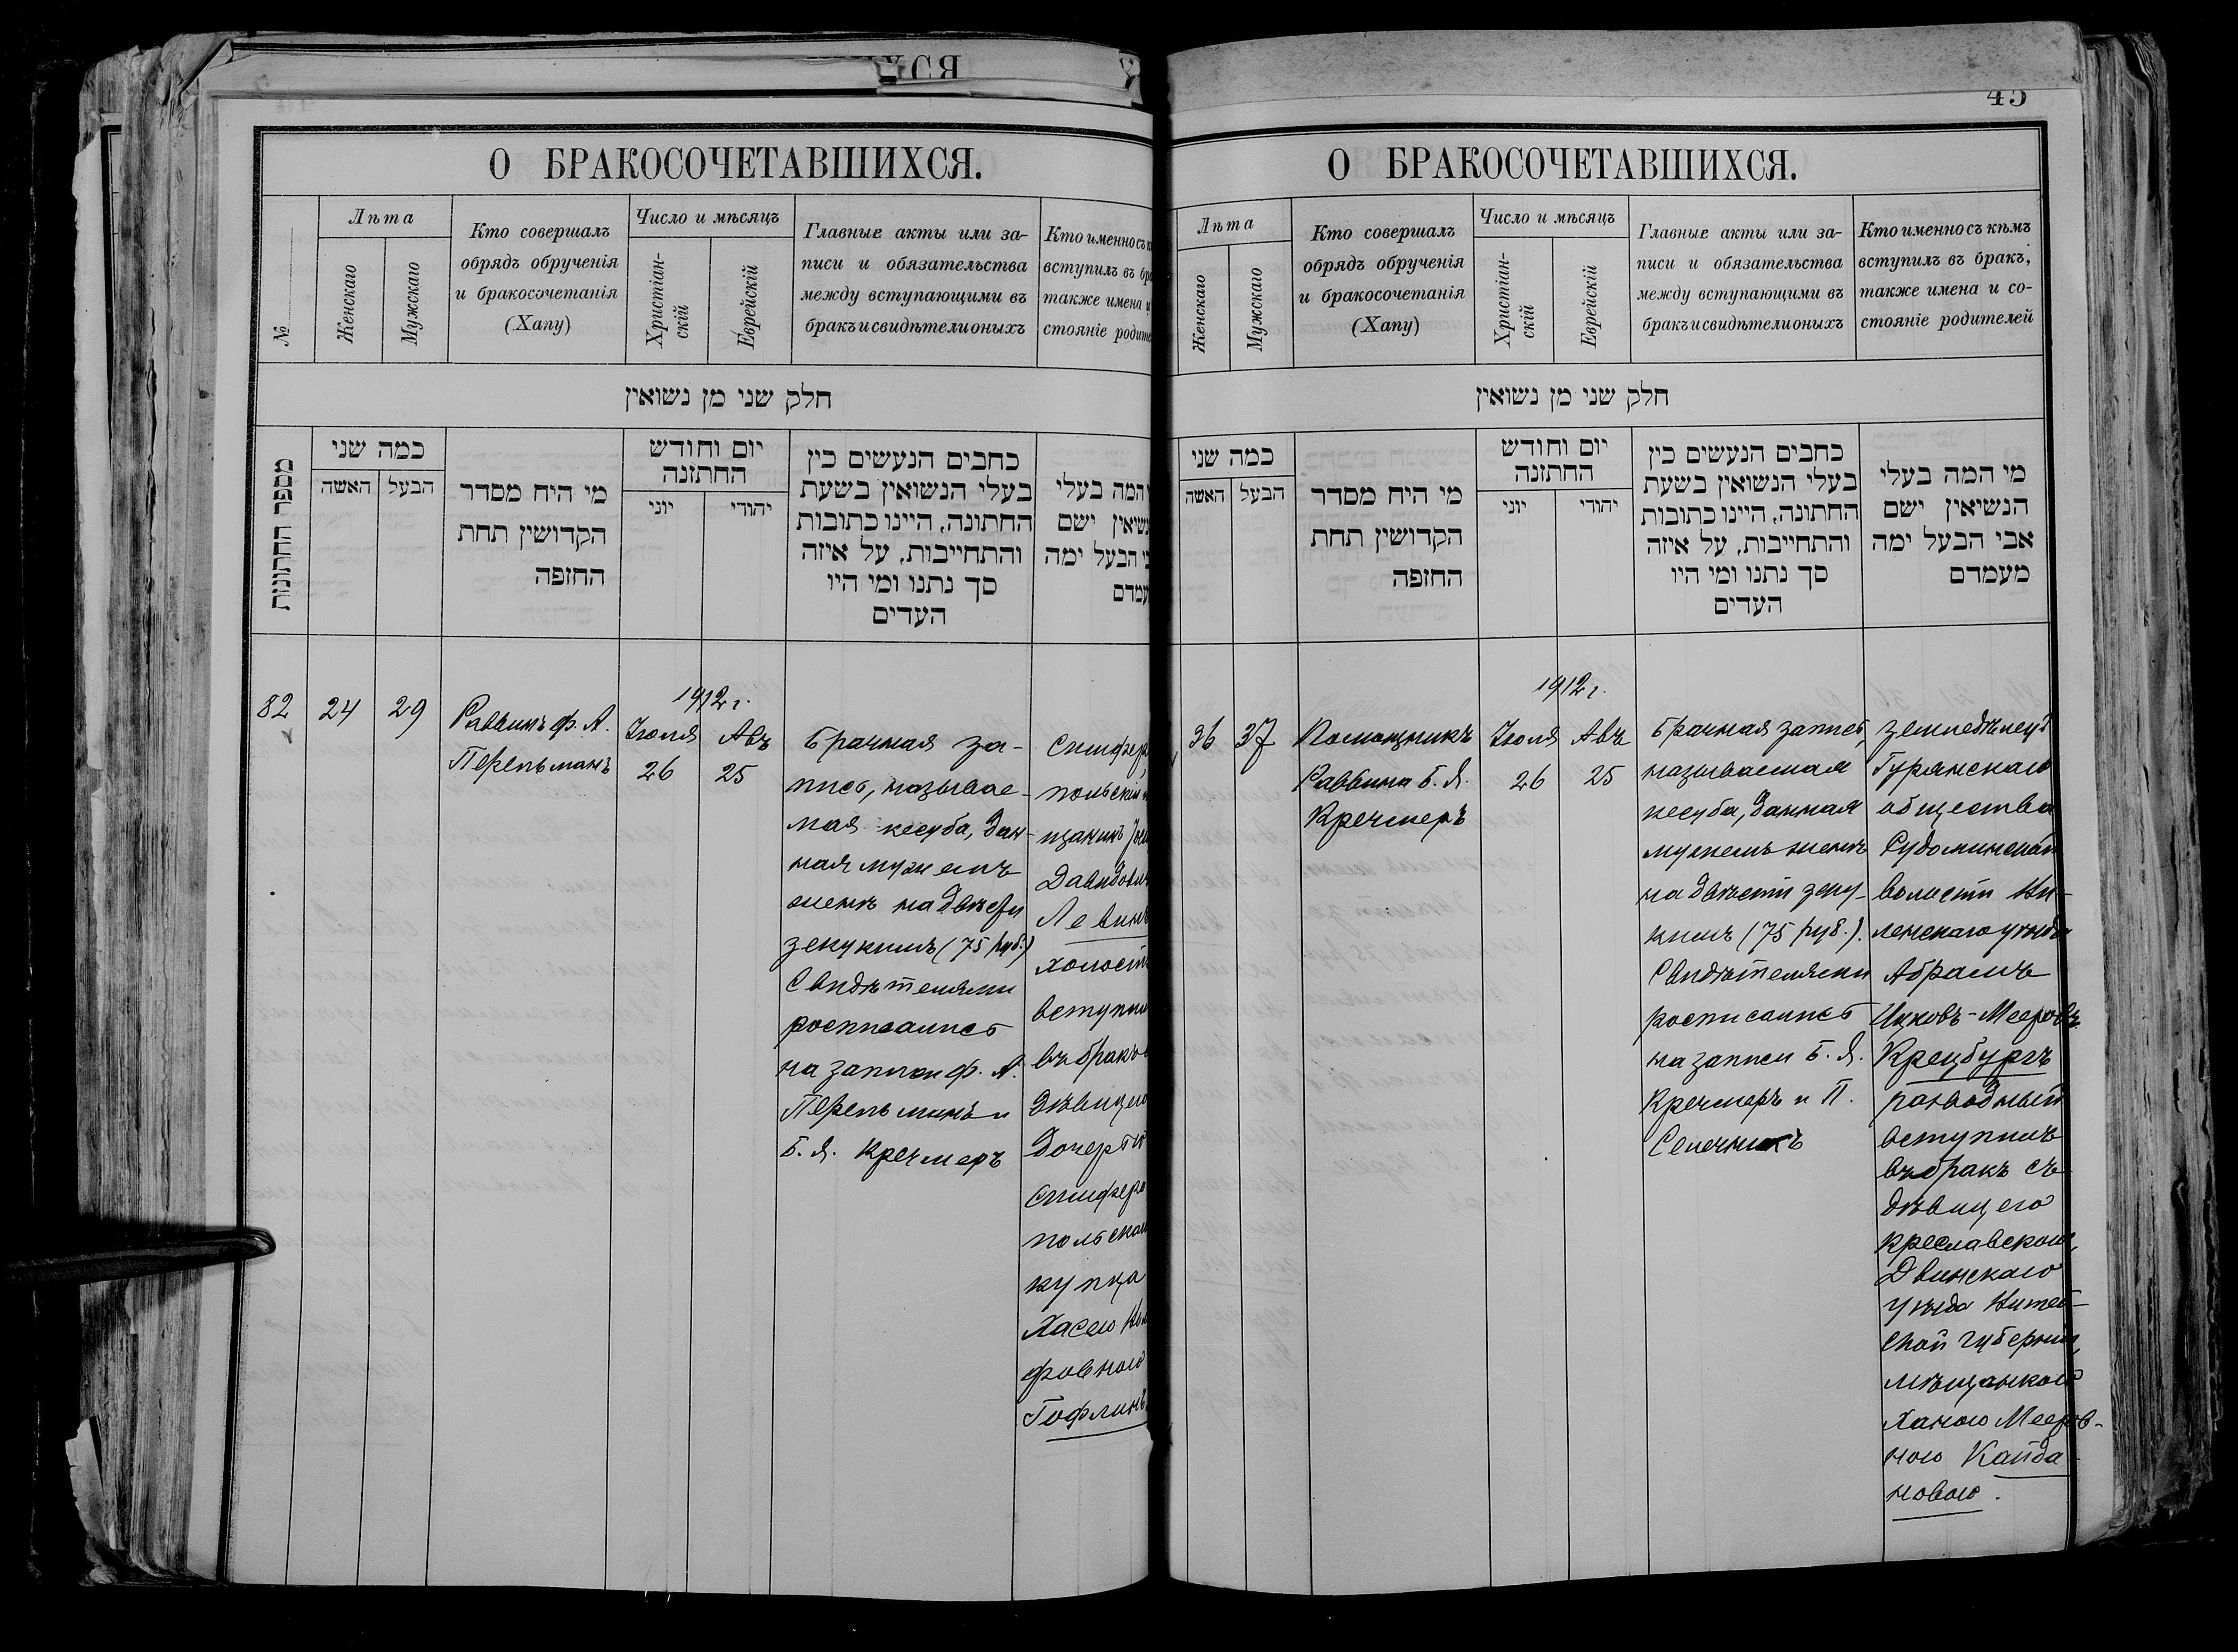 ХСЯ
О БРАКОСОЧЕТАВШИХСЯ.
№
Лѣта
Женскаго
Мужскаго
Кто совершалъ
обрядъ обрученія
и бракосочетанія
(Хапу)
Число и мѣсяцъ
Христіан-
скій
Еврейскій
Главные акты или за-
писи и обязательства
между вступающими въ
бракъ и свидѣтели оныхъ
Кто именно съ к
вступилъ въ бра
также имена и
стояніе родите
חלק שני מן נשואין
מספר החתונות
כמה שני
האשה
הבעל
מי היח מסדר
הקדושין תחת
החופה
יום וחודש
החתונה
יוני
יהודי
כתבים הנעשים כין
בעלי הנשואין בשעת
החתונה, היינו כתובות
והתחייבות, על איזה
סך נתנו ומי היו
העדים
המה בעלי
נשיאין ישם
הבעל ימה
עמדם
82
24
29
Раввинъ Ф. А.
Перельманъ
1912 г.
Іюля
26
Авъ
25
Брачная за-
пись, называе-
мая кесуба, дан-
ная мужемъ
женѣ на двѣсти
зекукимъ (75 руб.)
Свидѣтелями
росписались
на записи Ф. А.
Перельманъ и
Б. Я. Кречмеръ
Симфер
польскій
щанинъ
Давидович
Левин
холост
вступил
въ бракъ
дѣвицею
дочерью
Симферо
польскаго
купца
Хасею
фовною
Гофлинъ
45
О БРАКОСОЧЕТАВШИХСЯ.
Лѣта
Женскаго
Мужскаго
Кто совершалъ
обрядъ обрученія
и бракосочетанія
(Хапу)
Число и мѣсяцъ
Христіан-
скій
Еврейскій
Главные акты или за-
писи и обязательства
между вступающими въ
бракъ и свидѣтели оныхъ
Кто именно съ кѣмъ
вступилъ въ бракъ,
также имена и со-
стояніе родителей
חלק שני מן נשואין
כמה שני
האשה
הבעל
מי היח מסדר
הקדושין תחת
החופה
יום וחודש
החתונה
יוני
יהודי
כתבים הנעשים כין
בעלי הנשואין בשעת
החתונה, היינו כתובות
והתחייבות, על איזה
סך נתנו ומי היו
העדים
מי המה בעלי
הנשיאין ישם
אבי הבעל ימה
מעמדם
36
37
Помощникъ
Раввина Б. Я.
Кречмеръ
1912 г.
Іюля
26
Авъ
25
Брачная запись,
называемая
кесуба, данная
мужемъ женѣ
на двѣсти зеку-
кимъ (75 руб.).
Свидѣтелями
росписались
на записи Б. Я.
Кречмеръ и П.
Селечникъ
земледѣлецъ
Гурянскаго
общества
Рудоминской
волости Ви-
ленскаго уѣзда
Абрамъ
Ицковъ-Мееровъ
Крецбургъ
разводный
вступилъ
въ бракъ съ
дѣвицею
Креславскою,
Двинскаго
уѣзда Витеб-
ской губерніи,
мѣщанкою
Ханою Мееров-
ною Кайда-
новою.